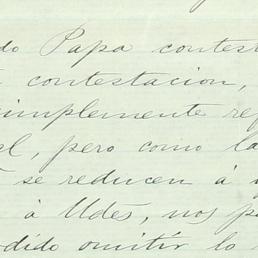 do Papa contest
contestacion,
implemente re
el, pero como la
se reducen á
á Udes, nos p
dido omitir lo